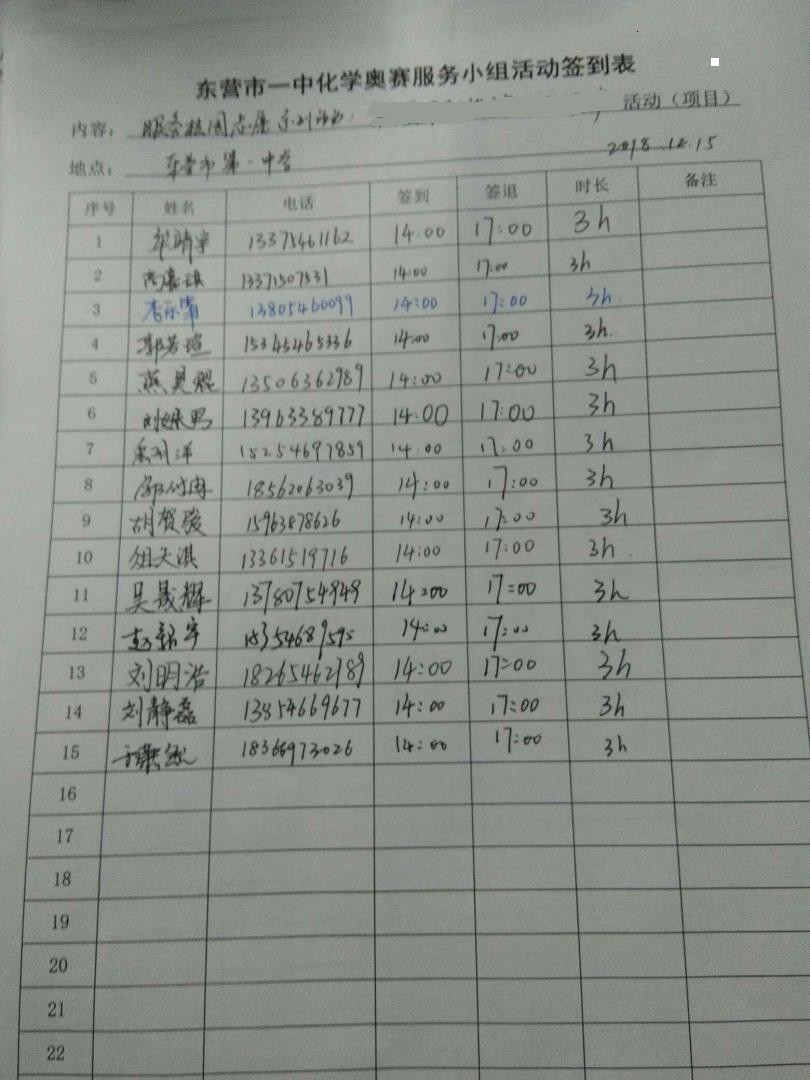 东营市一中化学奥赛服务小组活动签到表
内容： 服务校园志愿系列活动： 活动（项目）
地点： 东营市第一中学 2018.12.15
序号 姓名 电话 签到 签退 时长 备注
1 牟晴宇 13375461162 14:00 17:00 3h
2 13371507531 14:00 17:00 3h
3 李乐霄 13805460099 14:00 17:00 3h
4 郭若瑄 15345465336 14:00 17:00 3h
5 燕昊焜 13506362989 14:00 17:00 3h
6 13963389777 14:00 17:00 3h
7 15254697859 14:00 17:00 3h
8 18562063039 14:00 17:00 3h
9 胡贺骏 15963878626 14:00 17:00 3h
10 俎天淇 13361519716 14:00 17:00 3h
11 吴晟辉 13780754949 14:00 17:00 3h
12 赵翰宇 14:00 17:00 3h
13 刘明浩 18265462989 14:00 17:00 3h
14 刘静磊 13854669677 14:00 17:00 3h
15 18366973026 14:00 17:00 3h
16
17
18
19
20
21
22